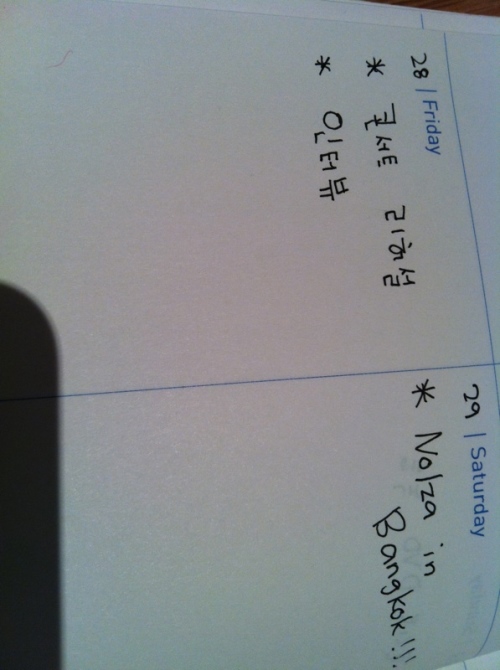 28 | Friday
* 콘서트 리허설
* 인터뷰
29 | Saturday
* Nolza in
Bangkok!!!